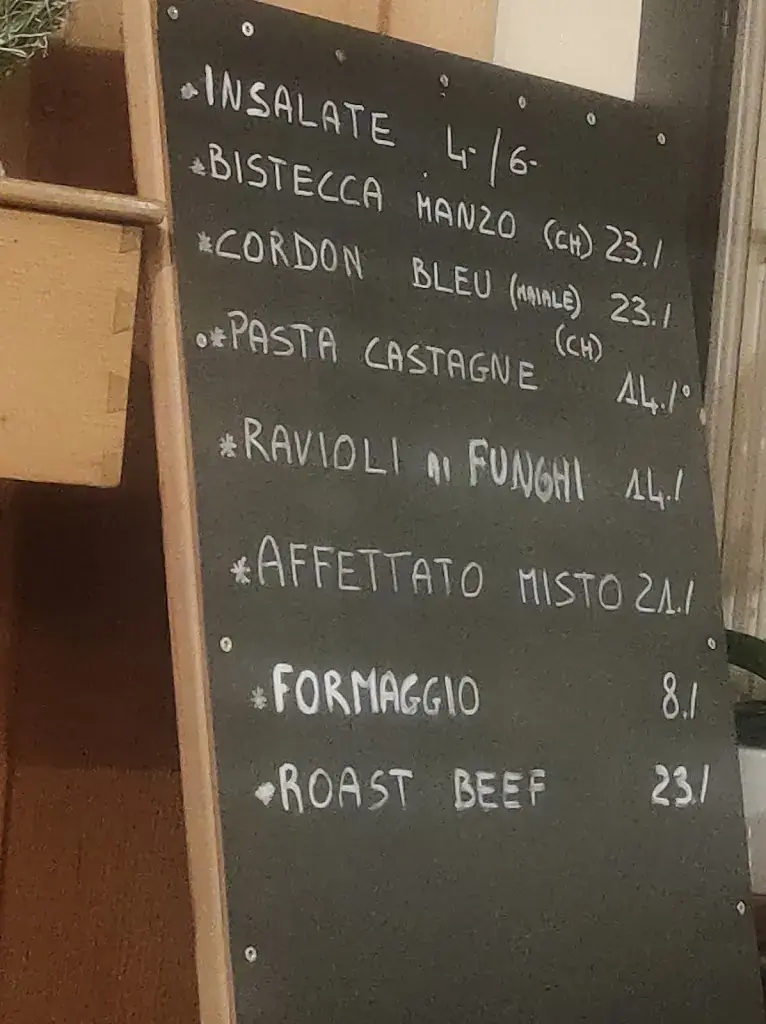 *INSALATE 4.-/6.-
*BISTECCA MANZO (CH) 23./
*CORDON BLEU (MAIALE) 23./
(CH)
*PASTA CASTAGNE 14./°
*RAVIOLI AI FUNGHI 14./
*AFFETTATO MISTO 21./
*FORMAGGIO 8./
*ROAST BEEF 23./